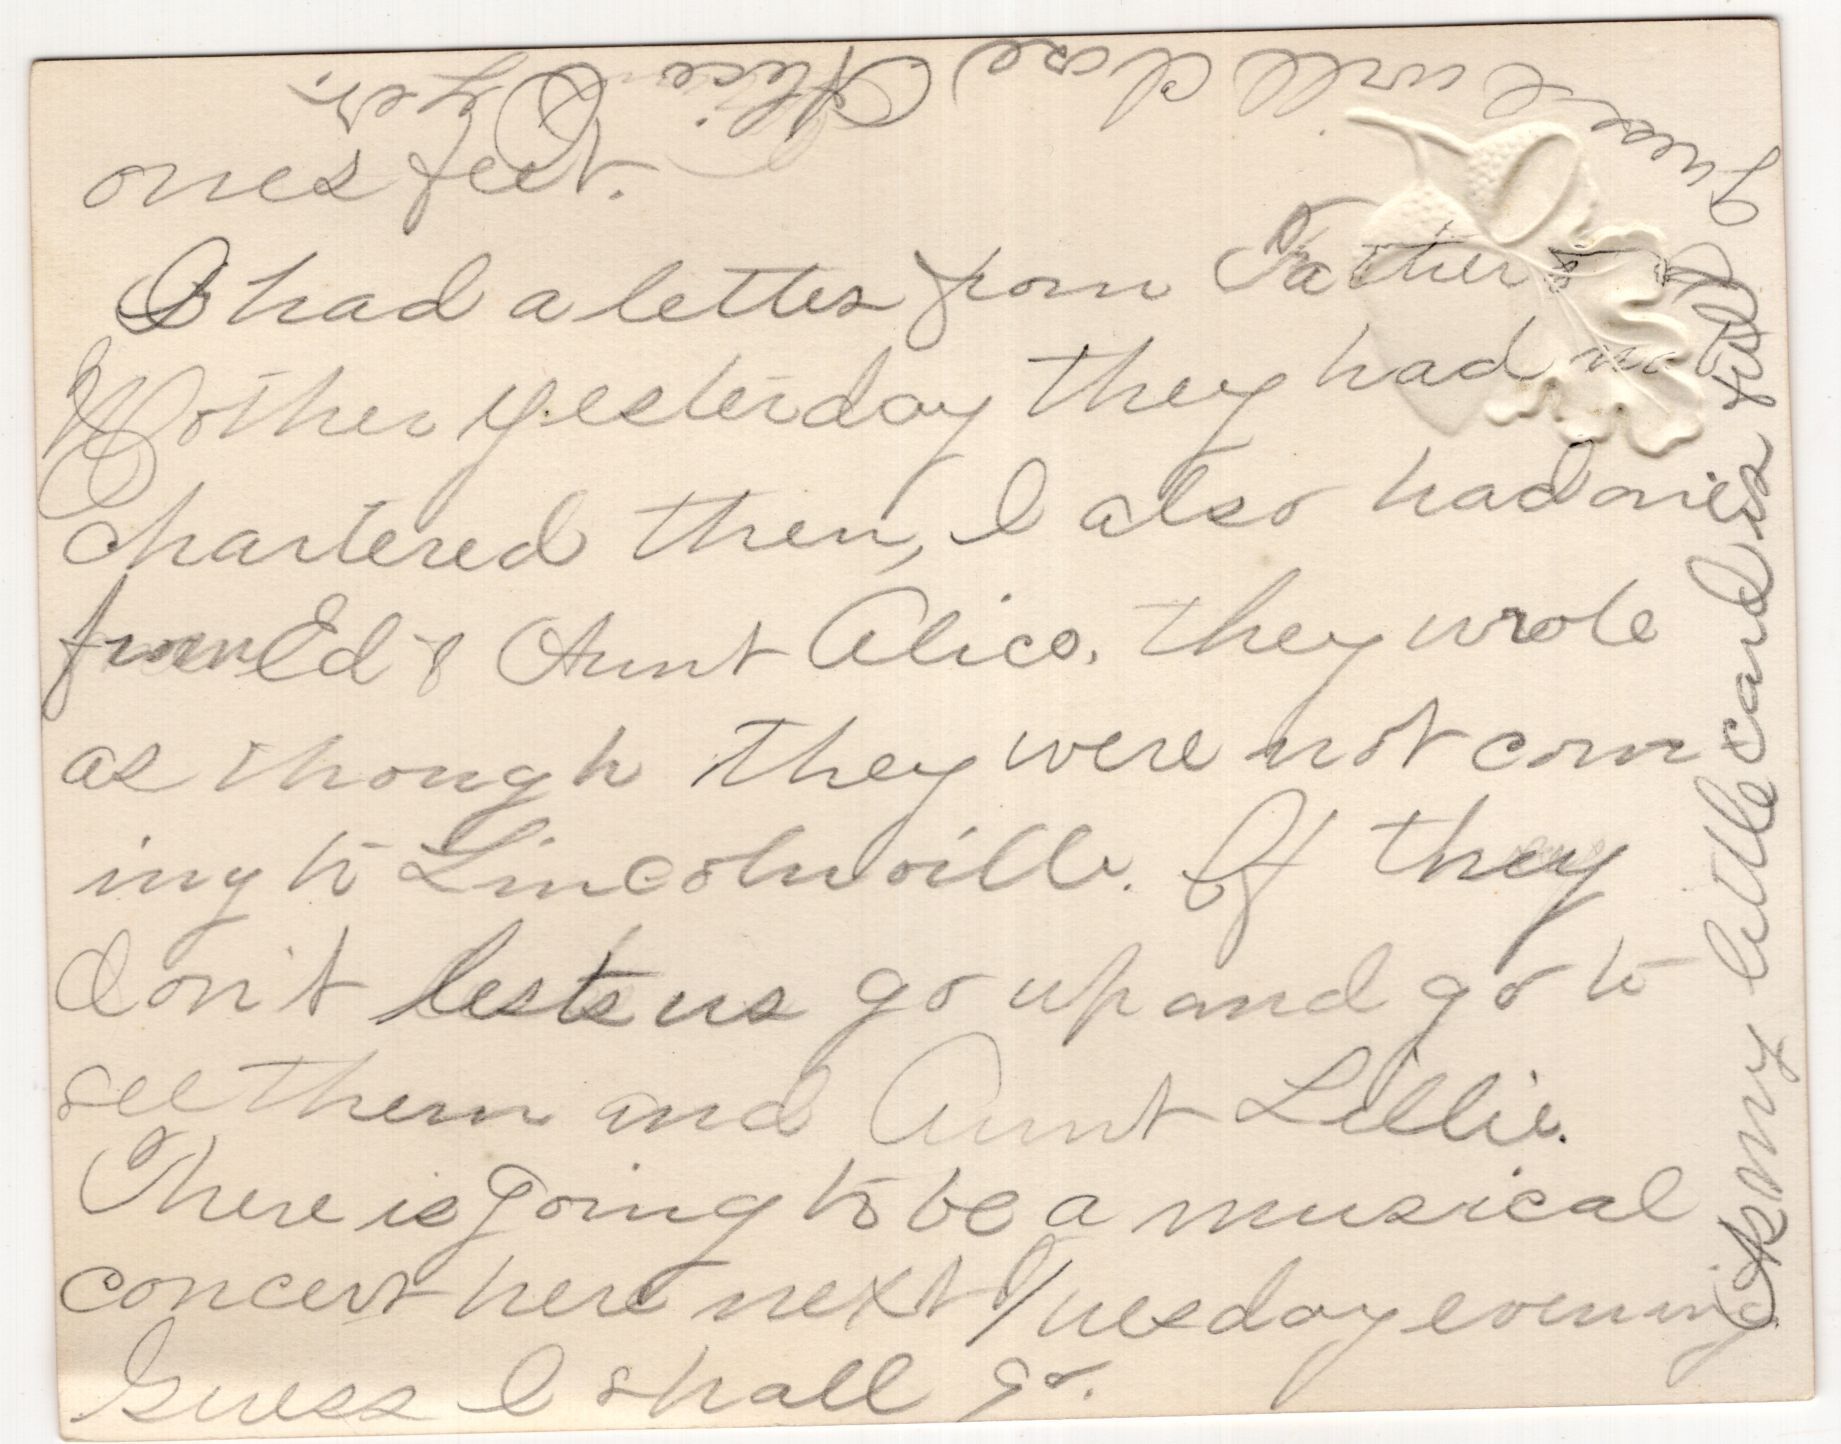 ones feet.
I had a letter from Father &
Mother yesterday they had not
chartered then, I also had one
from Ed & Aunt Alice. they wrote
as though they were not com
ing to Lincolnville. If they
don't lets us go up and go to
see them and Aunt Lillie.
There is going to be a musical
concert here next Tuesday evening
Guess I shall go.
As my little card is full
Guess I will close
Alice
Dyer.